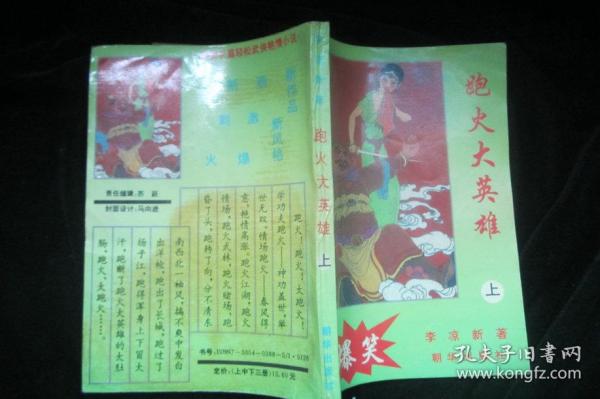 跑火大英雄
上
李凉新著
爆笑
跑火大英雄
上
朝华出版社
篇轻松武侠艳情小说
新作品
新风格
刺激
火爆
责任编辑：苏跃
封面设计：马向进
跑火！跑火！太跑火！
学功夫跑火——神功盖世，举
世无双，情场跑火——春风得
意，艳情高涨，跑火江湖，跑火
情场，跑火武林，跑火赌场，跑
昏了头，跑转了向，分不清东
南西北一袖风，搞不爽中发白
出洋枪，跑出了长城，跑过了
扬子江，跑得军身上下冒大
汗，跑断了跑火大英雄的大肚
肠，跑火，太跑火……。
定价：(上中下三册)15.60元
孔夫子旧书网
www.kongfz.com